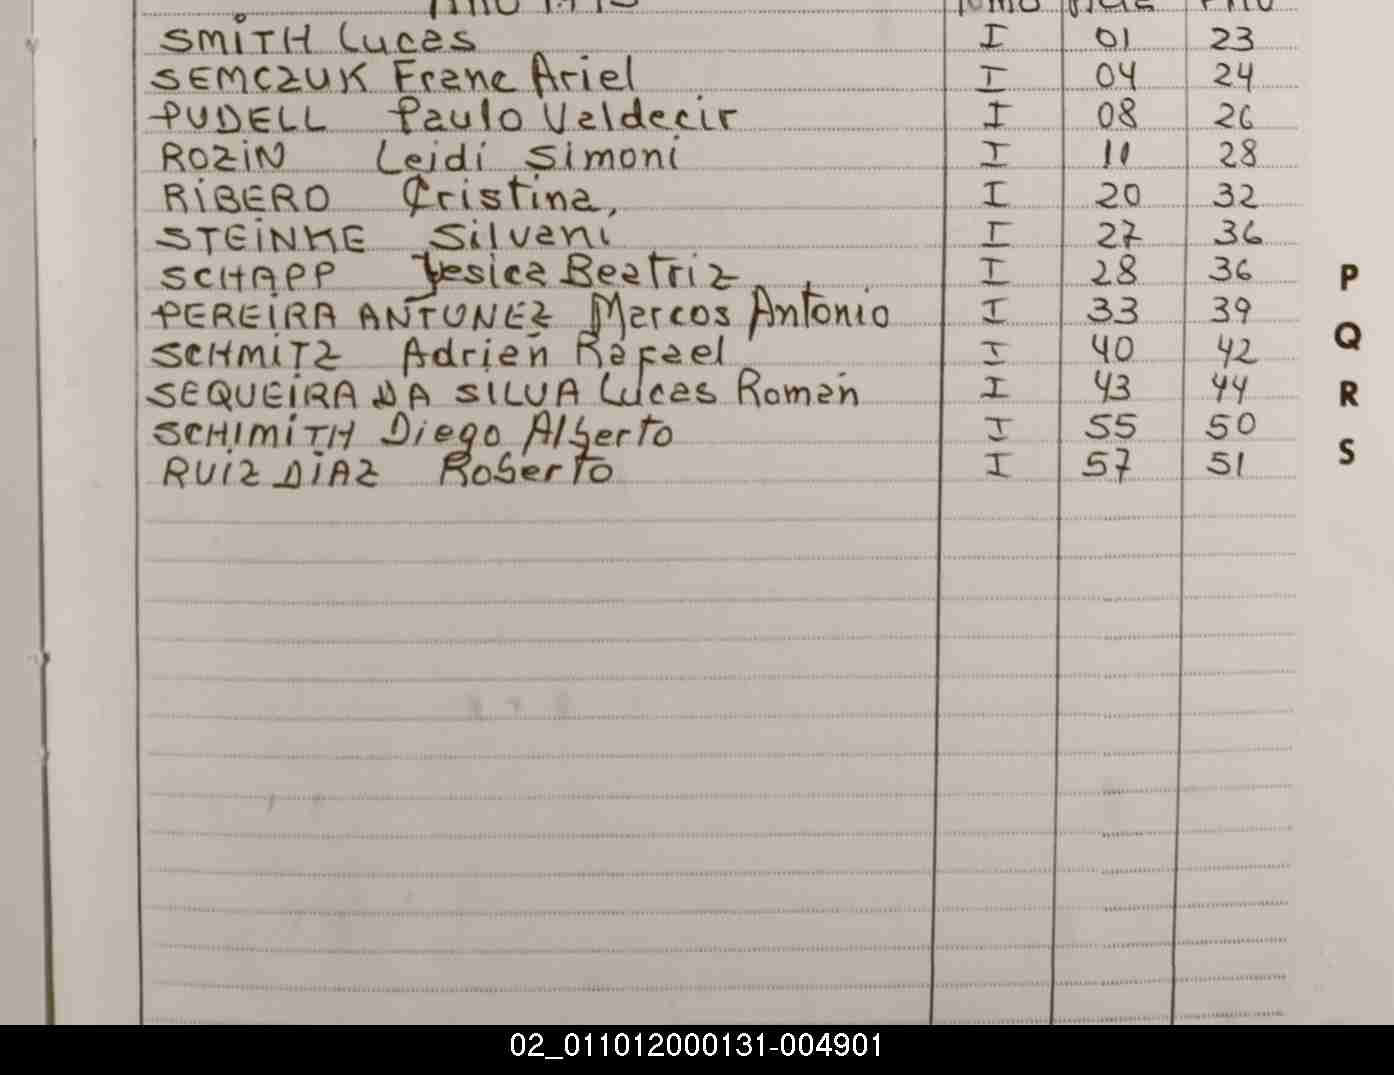 SMITH Lucas I 01 23
SEMCZUK Franc Ariel I 04 24
PUDELL Paulo Valdecir I 08 26
ROZIN Leidi Simoni I 11 28
RIBERO Cristina, I 20 32
STEINKE Silvani I 27 36
SCHAPP Yesica Beatriz I 28 36
P
PEREIRA ANTUNEZ Marcos Antonio I 33 39
Q
SCHMITZ Adrian Rafael I 40 42
SEQUEIRA DA SILVA Lucas Roman I 43 44
R
SCHIMITH Diego Alberto I 55 50
S
RUIZ DIAZ Roberto I 57 51
02_011012000131-004901